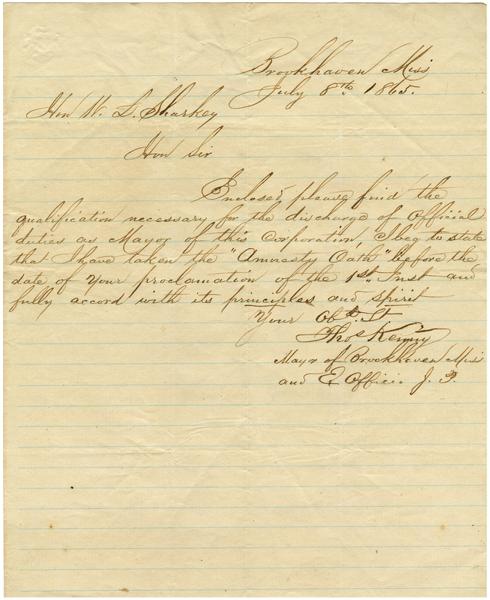 Brookhaven Miss
July 8th 1865.
Hon W. L. Sharkey
Hon Sir
Enclosed please find the
qualification necessary for the discharge of Official
duties as Mayor of this Corporation, I beg to state
that I have taken the "Amnesty Oath" before the
date of Your proclamation of the 1st Inst and
fully accord with its principles and spirit
Your Obt. St
Thos Kenny
Mayor of Brookhaven Miss
and E Officio J. P.